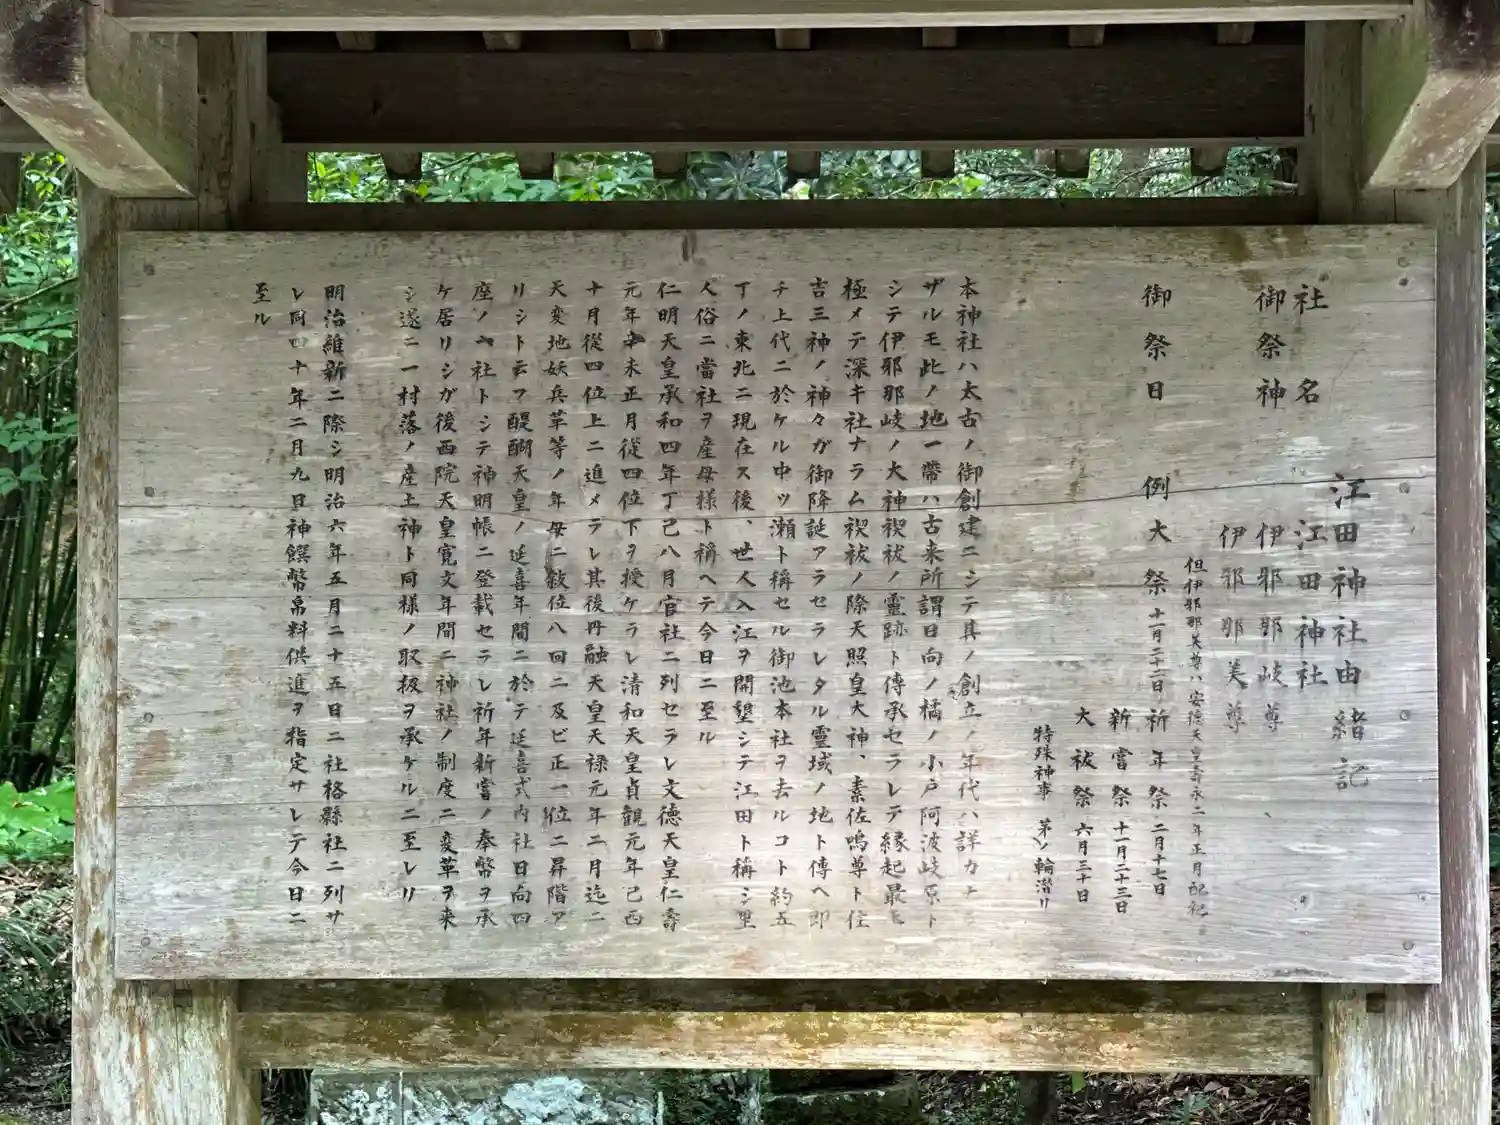 江田神社由緒記
社名　江田神社
御祭神　伊邪那岐尊
伊邪那美尊
但伊邪那美尊ハ安徳天皇壽永二年正月配祀
御祭日　例大祭　十一月二十二日　祈年祭　二月十七日
新嘗祭　十一月二十三日
大祓祭　六月三十日
特殊神事　茅ノ輪潜リ
本神社ハ太古ノ御創建ニシテ其ノ創立ノ年代ハ詳カナラ
ザルモ此ノ地一帶ハ古来所謂日向ノ橘ノ小戸阿波岐原ト
シテ伊邪那岐ノ大神禊祓ノ靈跡ト傳承セラレテ縁起最モ
極メテ深キ社ナラム禊祓ノ際天照皇大神、素佐嗚尊ト住
吉三神ノ神々ガ御降誕アラセラレタル靈域ノ地ト傳ヘ即
チ上代ニ於ケル中ツ瀬ト稱セル御池本社ヲ去ルコト約五
丁ノ東北ニ現在ス後、世人入江ヲ開墾シテ江田ト稱シ里
人俗ニ當社ヲ産母様ト稱ヘテ今日ニ至ル
仁明天皇承和四年丁己八月官社ニ列セラレ文徳天皇仁壽
元年辛未正月從四位下ヲ授ケラレ清和天皇貞観元年己酉
十月從四位上ニ進メラレ其後丹融天皇天禄元年二月迄ニ
天変地妖兵革等ノ年毎ニ敍位八回ニ及ビ正一位ニ昇階ア
リシト云フ醍醐天皇ノ延喜年間ニ於テ延喜式内社日向四
座ノ一社トシテ神明帳ニ登載セラレ祈年新嘗ノ奉幣ヲ承
ケ居リシガ後西院天皇寛文年間ニ神社ノ制度ニ変革ヲ来
シ遂ニ一村落ノ産土神ト同様ノ取扱ヲ承ケルニ至レリ
明治維新ニ際シ明治六年五月二十五日ニ社格縣社ニ列サ
レ同四十年二月九日神饌幣帛料供進ヲ指定サレテ今日ニ
至ル